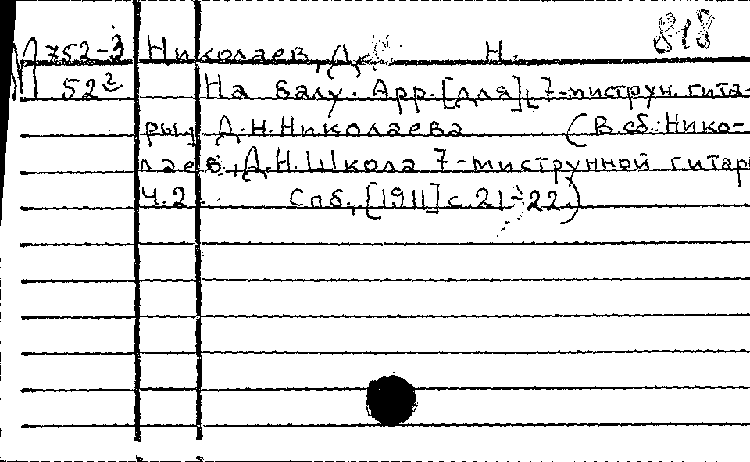 818
М 752-3 Николаев, Д. Н.
52² На балу. Арр. [для] 7-миструн. гита-
ры Д.Н.Николаева (В сб.: Нико-
лаев, Д.Н. Школа 7-миструнной гитары
Ч.2. Спб, [1911] с.21-22.)